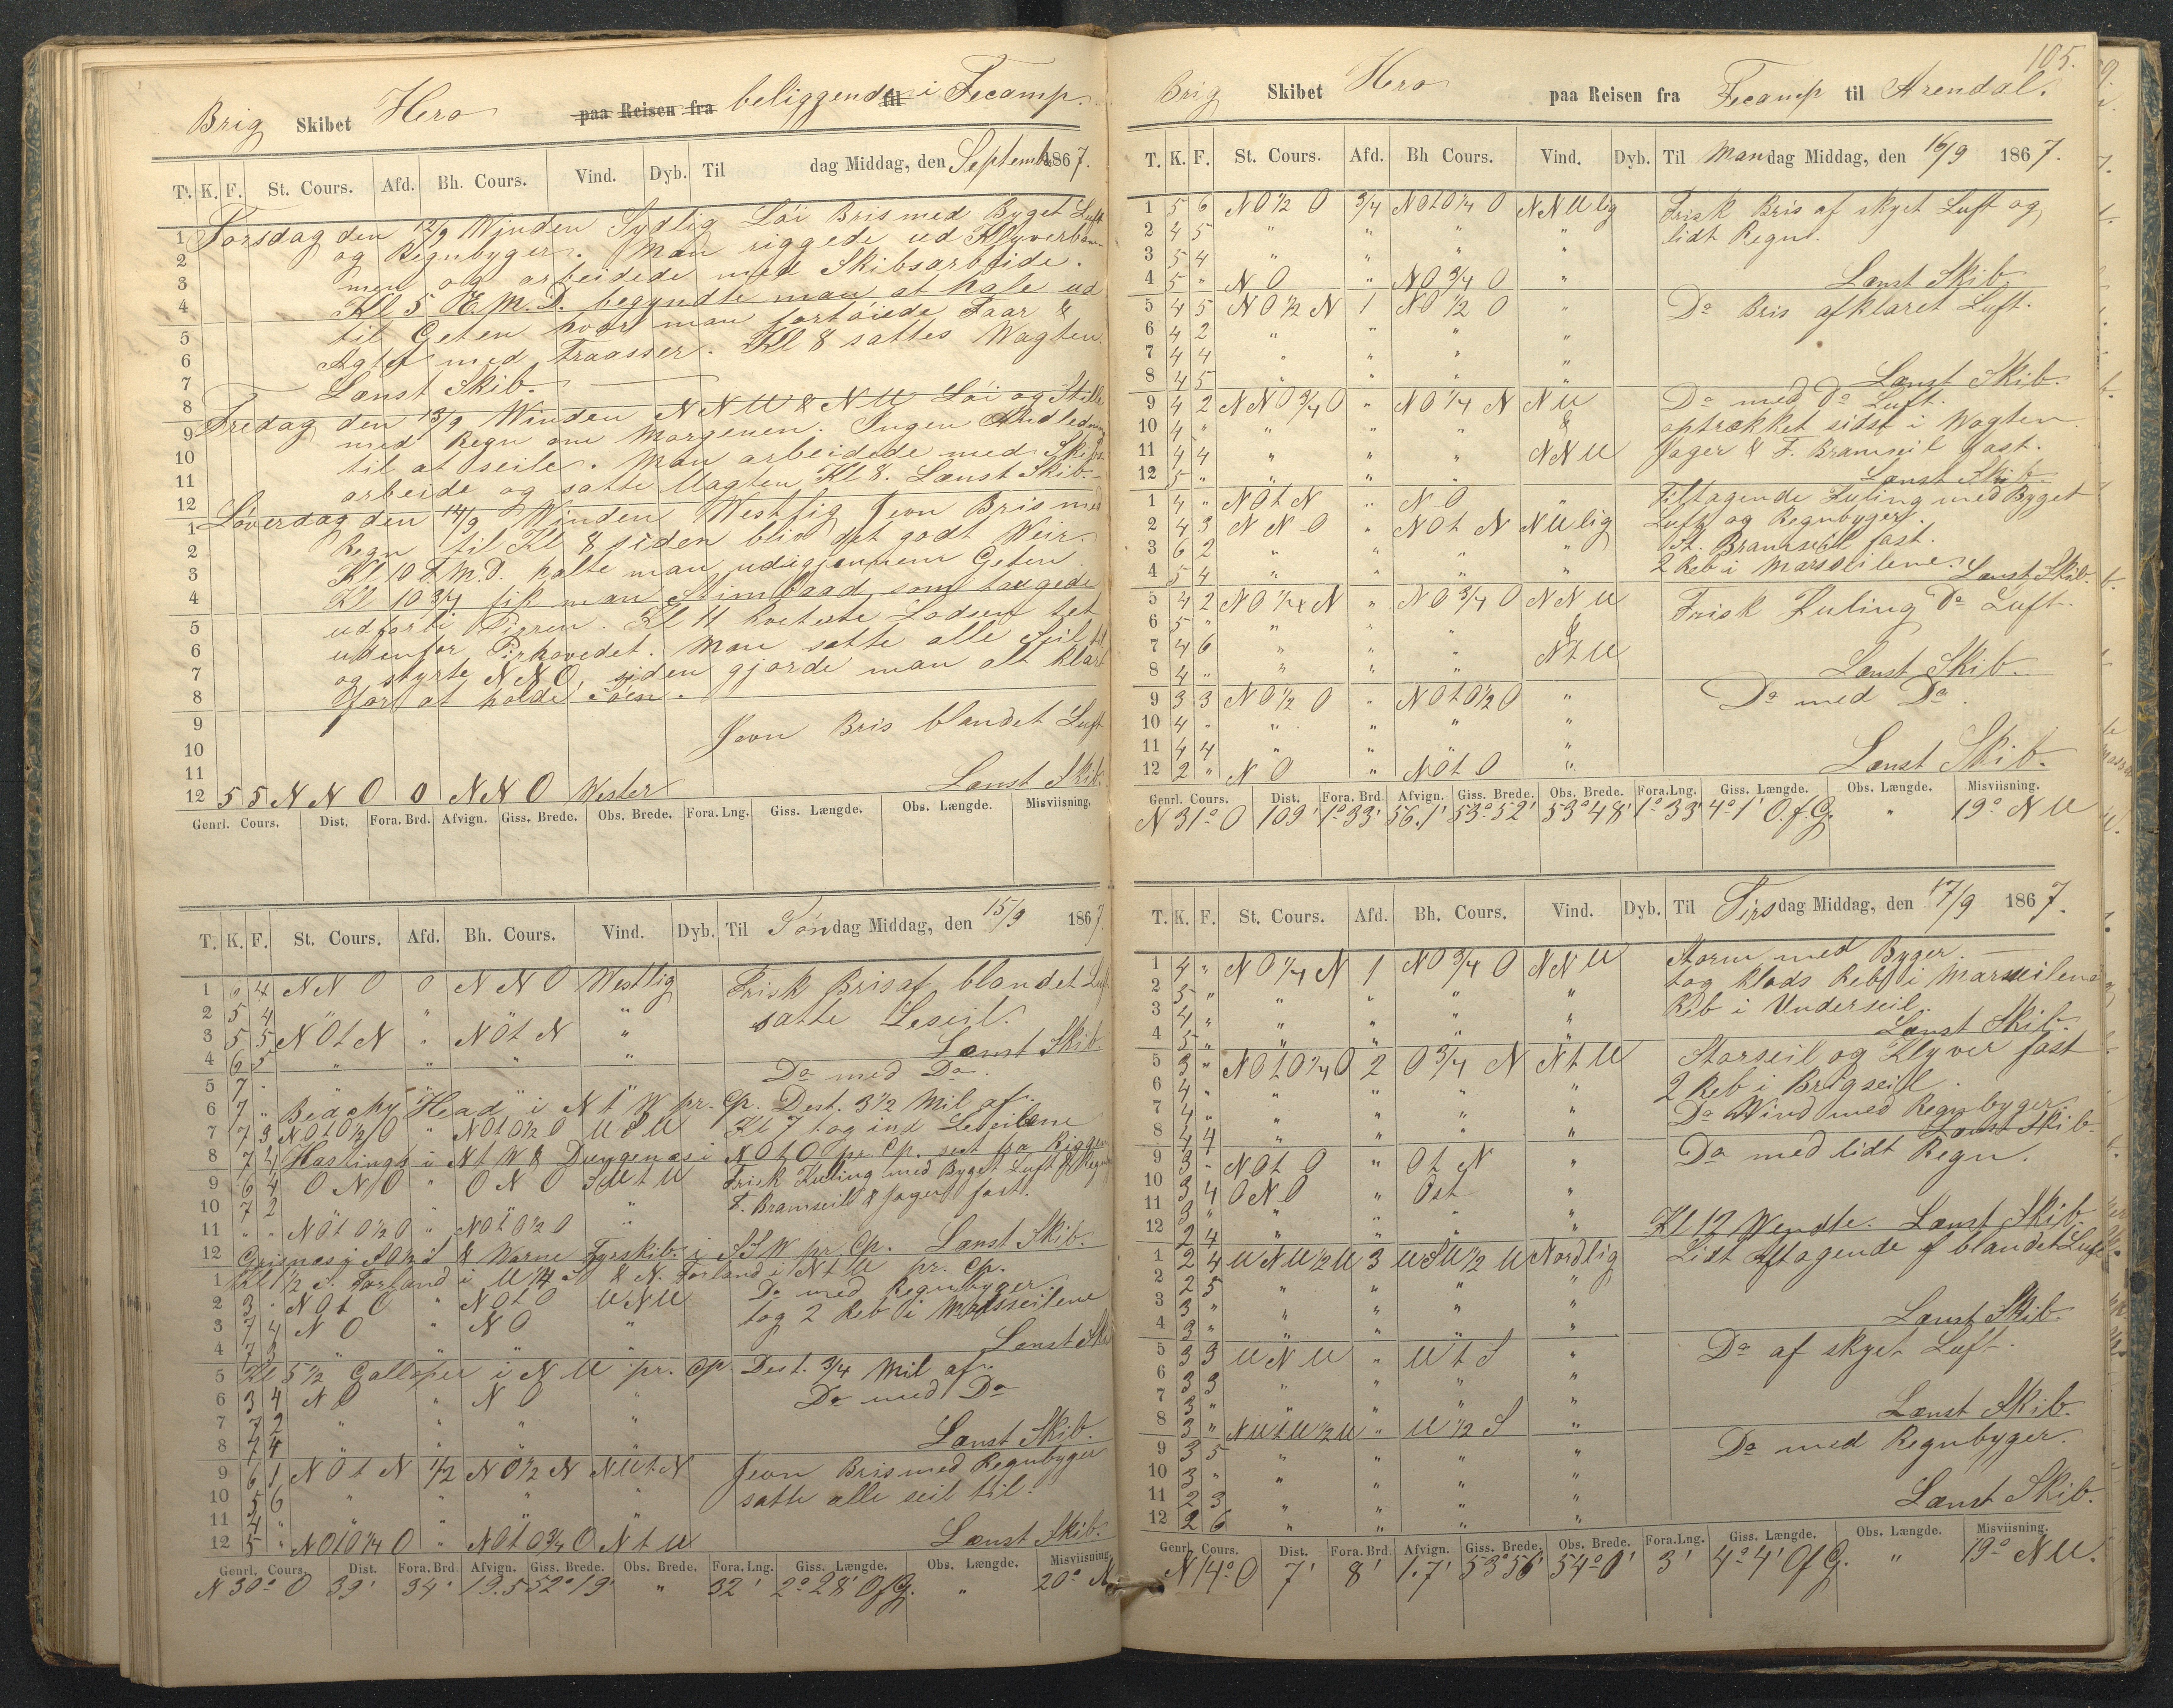 Brig Skibet Hero paa Reisen fra beliggende til i Fecamp.
T. K. F. St. Cours. Afd. Bh. Cours. Vind. Dyb. Til dag Middag, den September 1867.
Torsdag den 12/9 Winden Sydlig Löi Bris med Byget Luft
og Regnbyger. Man riggede ud Klyverbom-
men og arbeidede med Skibsarbeide.
Kl 5 E.M.D. begyndte man at hale ud
til Geten hvor man fortöiede Faar &
Agter med Traasser. Kl 8 sattes Wagten
Lænst Skib.
Fredag den 13/9 Winden N N W & N W Löi og Stille
med Regn om Morgenen. Ingen Anledning
til at seile. Man arbeidede med Skibs-
arbeide og satte Wagten Kl 8. Lænst Skib.
Löverdag den 14/9 Winden Westlig Jevn Bris med
Regn til Kl 8 siden bliv det godt Weir.
Kl 10 F.M.D. halte man ud igjennem Geten
Kl 10 3/4 fik man Stimbaad som taugede
udforbi Pieren. Kl 11 kviterte Lodsen tet
udenfor Pirhovedet. Man satte alle Seil til
og styrte N N O, siden gjorde man alt klart
for at holde Söen.
Jevn Bris blandet Luft
Lænst Skib.
12 5 5 N N O 0 N N O Wester
Genrl. Cours. Dist. Fora. Brd. Afvign. Giss. Brede. Obs. Brede. Fora. Lng. Giss. Længde. Obs. Længde. Misviisning.
T. K. F. St. Cours. Afd. Bh. Cours. Vind. Dyb. Til Söndag Middag, den 15/9 1867.
1 " 4 N N O 0 N N O Westlig Frisk Bris af blandet Luft
2 5 4 " " " " satte Leseil.
3 5 5 N O t N " N O t N "
4 6 5 " " " " Lænst Skib
5 7 " Do med Do.
6 7 " Beachy Head i N t W pr. Cp. Dest. 3 1/2 Mil af.
7 7 3 N O t O 1/2 O " N O t O 1/2 O W S W Kl 7 tog ind Leseilene
8 7 4 Hastings i N t W & Dungenæs i N O t O pr. Cp. seet fra Riggen
9 6 4 O N O " O N O S W t W Frisk Kuling med Byget Luft & Regn
10 7 2 " " " " F. Bramseil & Jager fast.
11 " " N O t O 1/2 O " N O t O 1/2 O " Lænst Skib.
12 Grisnæs i S & Warne Fyrskib i S S W pr. Cp.
1 Kl 1/2 S. Forland i W 1/4 S & N. Forland i N t W pr. Cp.
2 3 " N O t O " N O t O W N W Do med Regnbyger.
3 7 4 N O " N O " tog 2 Reb i Mærsseilene
4 7 3 " " " " Lænst Skib
5 Kl 5 1/2 Galloper i N W pr. Cp. Dest. 3/4 Mil af.
6 3 4 N O " N O " Do med Do
7 7 2 " " " "
8 7 4 " " " " Lænst Skib.
9 6 1 N O t N 1/2 N O 1/2 N N W t N Jevn Bris med Regnbyger
10 5 6 " " " " satte alle seil til.
11 4 " " " " "
12 5 " N O t O 1/4 O " N O t O 3/4 O N t W Lænst Skib.
Genrl. Cours. Dist. Fora. Brd. Afvign. Giss. Brede. Obs. Brede. Fora. Lng. Giss. Længde. Obs. Længde. Misviisning.
N 30° O 39' 34' 19.5 52° 19' " 32' 2° 28' O f G. " 20° N
105.
Brig Skibet Hero paa Reisen fra Fecamp til Arendal.
T. K. F. St. Cours. Afd. Bh Cours. Vind. Dyb. Til Mandag Middag, den 16/9 1867.
1 5 6 N O 1/2 O 3/4 N O t O 1/4 O N N W lig Frisk Bris af skyet Luft og
2 4 5 " " " " lidt Regn.
3 5 4 " " " "
4 5 " N O " N O 3/4 O " Lænst Skib
5 4 5 N O 1/2 N 1 N O 1/2 O " Do Bris afklaret Luft.
6 4 2 " " " "
7 4 4 " " " "
8 4 5 " " " " Lænst Skib.
9 4 2 N N O 3/4 O " N O 1/4 N N W Do med do Luft.
10 4 " " " " & optrækket sidst i Wagten.
11 4 4 " " " N N W Jager & F. Bramseil fast.
12 5 " " " " Lænst Skib
1 4 " N O t N " N O " Tiltagende Kuling med Byget
2 4 3 N N O " N O t N N W lig Luft og Regnbyger.
3 6 2 " " " " St. Bramseil fast.
4 5 4 " " " " 2 Reb i Marsseilene. Lænst Skib.
5 4 2 N O 1/4 N " N O 3/4 O N N W Frisk Kuling Do Luft.
6 5 " " " " &
7 4 6 " " " N t W
8 4 " " " " Lænst Skib.
9 3 3 N O 1/2 O " N O t O 1/2 O " Do med Do.
10 4 " " " " "
11 4 4 " " " "
12 2 " N O " N O t O " Lænst Skib.
Genrl. Cours. Dist. Fora. Brd. Afvign. Giss. Brede. Obs. Brede. Fora. Lng. Giss. Længde. Obs. Længde. Misviisning.
N 31° O 109' 1° 33' 56.1' 53° 52' 53° 48' 1° 33' 4° 1' O. f. G. " 19° N W
T. K. F. St. Cours. Afd. Bh. Cours. Vind. Dyb. Til Tirsdag Middag, den 17/9 1867.
1 4 " N O 1/4 N 1 N O 3/4 O N N W Storm med Byger.
2 5 " " " " " tog Klods Reb i Marsseilene
3 4 " " " " " Reb i Underseil.
4 5 " " " " " Lænst Skib.
5 3 " N O t O 1/4 O 2 O 3/4 N N t W Storseil og Klyver fast
6 4 " " " " " 2 Reb i Brigseil.
7 4 " " " " " Do Wind med Regnbyger
8 4 4 " " " " Lænst Skib
9 3 " N O t O " O t N " Do med lidt Regn.
10 3 4 O N O " Ost "
11 3 " " " " "
12 2 4 " " " " Kl 12 Wendte. Lænst Skib
1 2 4 W N W 1/2 W 3 W S W 1/2 W Nordlig Lidt Aftagende af blandet Luft
2 2 5 " " " "
3 3 " " " " "
4 3 " " " " " Lænst Skib.
5 3 3 W N W " W t S " Do af skyet Luft.
6 3 3 " " " "
7 3 " " " " "
8 3 " N W t W 1/2 W " W 1/2 S " Lænst Skib.
9 3 5 " " " " Do med Regnbyger.
10 3 " " " " "
11 2 3 " " " "
12 2 6 " " " " Lænst Skib.
Genrl. Cours. Dist. Fora. Brd. Afvign. Giss. Brede. Obs. Brede. Fora. Lng. Giss. Længde. Obs. Længde. Misviisning.
N 14° O 7' 8' 1.7' 53° 56' 54° 0' 3' 4° 4' O f G. " 19° N W.